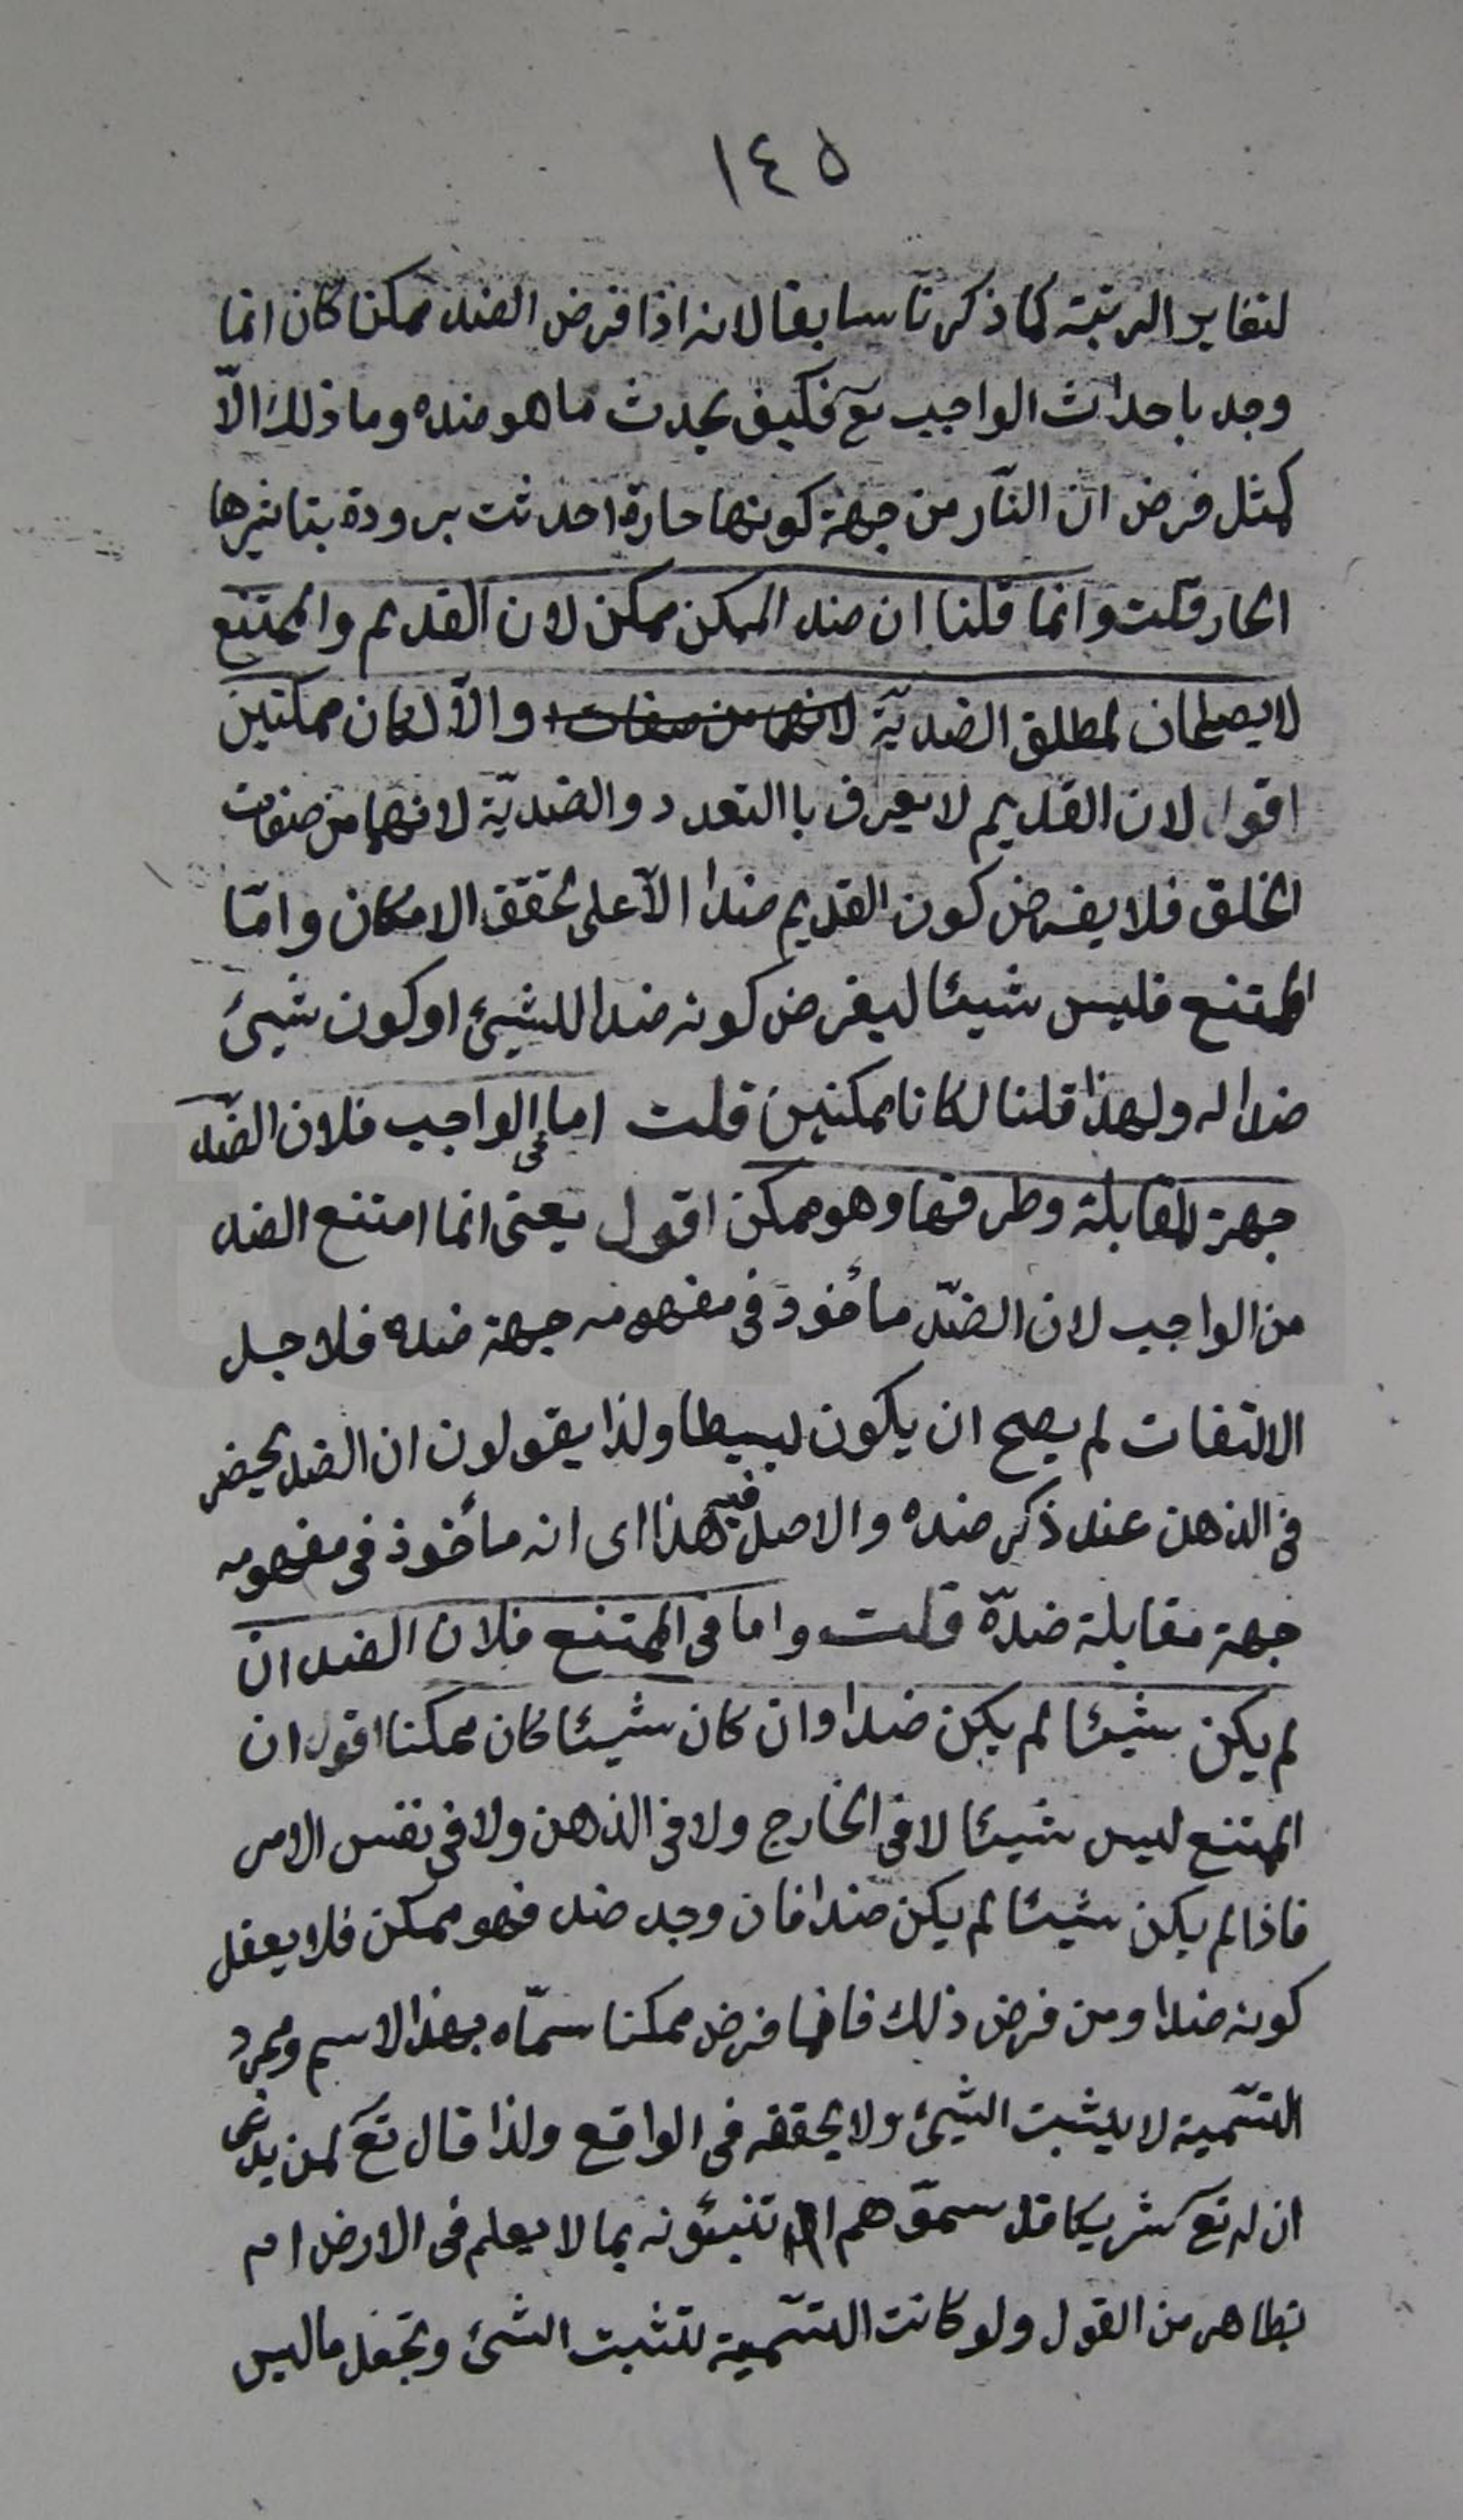 ١٤٥
لتغاير الرتبة كما ذكرنا سابقا لانه اذا فرض الضد ممكنا كان انما
وجد باحداث الواجب تع فكيف يحدث ما هو ضده وما ذلك الّا
كمثل فرض ان النّار من جهة كونها حارة احدثت برودة بتاثيرها
الحار قلت وانما قلنا ان ضد الممكن ممكن لان القديم والممتنع
لا يصلحان لمطلق الضديّة لانهما من صفات والّا لكان ممكنين
اقول لان القديم لا يعرف باالتعدد والضديّة لانهما من صفات
الخلق فلا يفرض كون القديم ضدا الّا على تحقق الامكان وامّا
الممتنع فليس شيئا ليفرض كونه ضدا للشيئ او كون شيئ
ضدا له ولهذا قلنا لكانا ممكنين قلت اما فى الواجب فلان الضّد
جهة المقابلة وطرفها وهو ممكن اقول يعنى انما امتنع الضد
من الواجب لان الضدّ مأخوذ فى مفهومه جهة ضده فلاجل
الالتفات لم يصح ان يكون بسيطا ولذا يقولون ان الضد يحضر
فى الذهن عند ذكر ضده والاصل فيه هذا اى انه مأخوذ فى مفهومه
جهة مقابلة ضدّه قلت واما فى الممتنع فلان الضد ان
لم يكن شيئا لم يكن ضدا وان كان شيئا كان ممكنا اقول ان
الممتنع ليس شيئا لا فى الخارج ولا فى الذهن ولا فى نفس الامر
فاذا لم يكن شيئا لم يكن ضدا فان وجد ضد فهو ممكن فلا يعقل
كونه ضدا ومن فرض ذلك فانما فرض ممكنا سمّاه بهذا الاسم ومجرد
التسّمية لا يثبت الشيئ ولا يحققه فى الواقع ولذا قال تع لمن يدعى
ان له تع شريكا قل سموّهم ام تنبئونه بما لا يعلم فى الارض ام
بظاهر من القول ولو كانت التسّمية تثبت الشئ وتجعل ما ليس